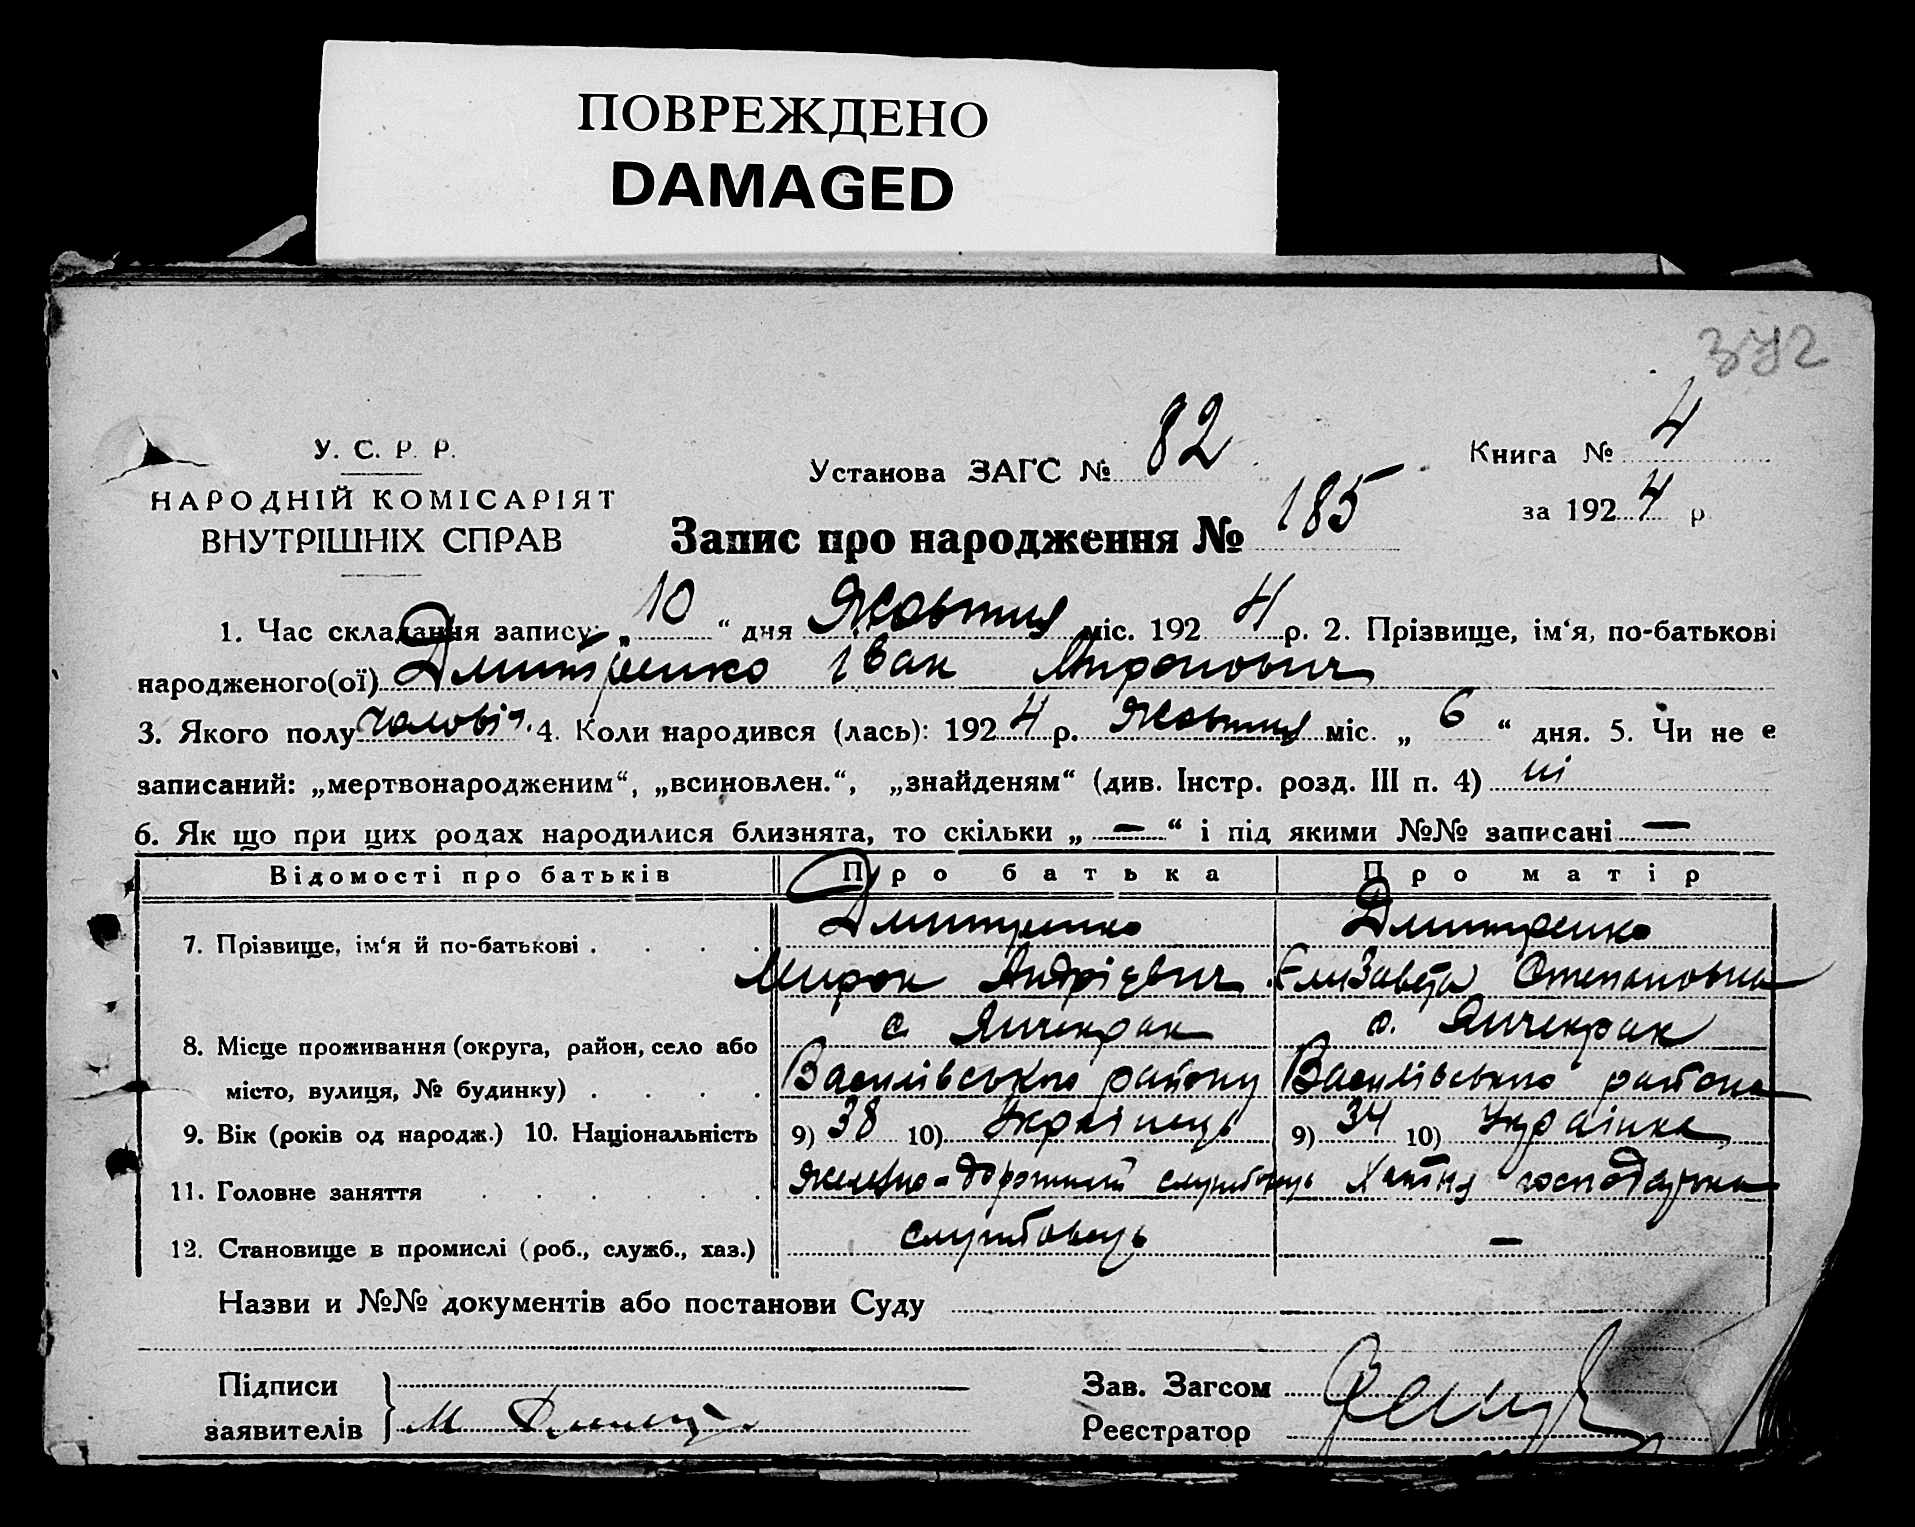 ПОВРЕЖДЕНО
DAMAGED
372
У. С. Р. Р.
НАРОДНІЙ КОМІСАРІЯТ
ВНУТРІШНІХ СПРАВ
Установа ЗАГС № 82
Книга № 4
за 1924 р
Запис про народження № 185
1. Час складання запису: „10“ дня Жовтня міс. 1924 р. 2. Прізвище, ім‘я, по-батькові
народженого(ої) Дмитренко Іван Миронович
3. Якого полу чоловіч. 4. Коли народився (лась): 1924 р. Жовтня міс. „ 6 “ дня. 5. Чи не є
записаний: „мертвонародженим“, „всиновлен.“, „знайденям“ (див. Інстр. розд. III п. 4) ні
6. Як що при цих родах народилися близнята, то скільки „ — “ і під якими №№ записані —
Відомості про батьків Про батька Про матір
7. Прізвище, ім‘я й по-батькові . . . . Дмитренко Дмитренко
Мирон Андрієвич Єлизавета Степановна
с. Янчекрак с. Янчекрак
8. Місце проживання (округа, район, село або
місто, вулиця, № будинку) . . . . Василівського району Василівського района
9. Вік (років од народж.) 10. Національність 9) 38 10) Українець 9) 34 10) Українка
11. Головне заняття . . . . . службовець Хатня господарка
12. Становище в промислі (роб., служб., хаз.) службовець —
Назви и №№ документів або постанови Суду
Підписи
заявителів
М
Зав. Загсом
Реєстратор